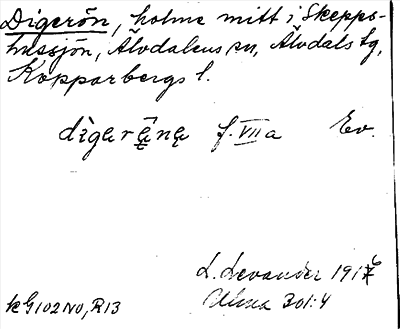 Digerön, holme mitt i Skepps-
hussjön, Älvdalens sn, Älvdals tg,
Kopparbergs l.
dìgaråną f. VII a Ev.
L. Levander 1916
Ulma 301:4
kG102NO, R13